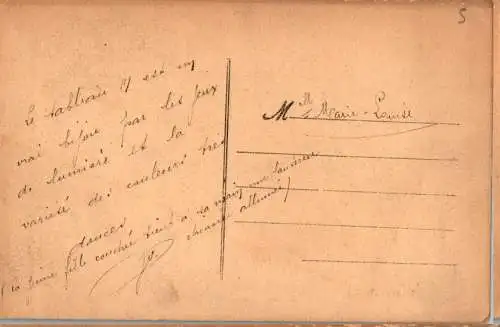 5
Le tableau ci est un
vrai bijou par les jeux
de lumière et la
variété des couleurs très
douces
(La jeune fille couchée tient à sa main une
chinoise allumée)
Mlle Marie-Louise